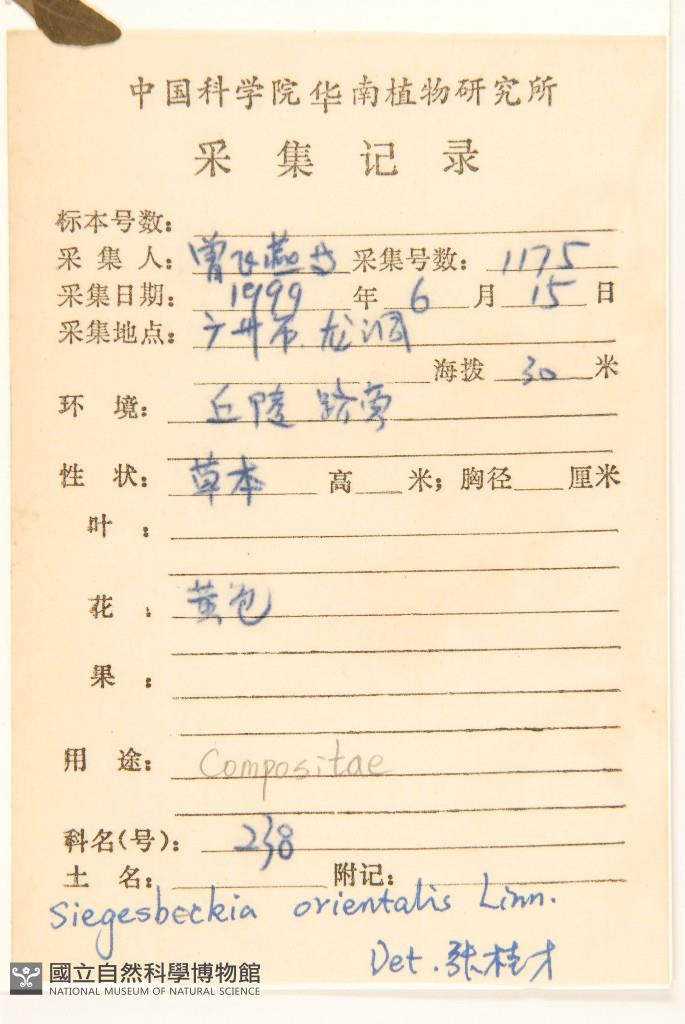 中国科学院华南植物研究所
采集记录
标本号数：
采集人：曾飞燕 采集号数：1175
采集日期：1999年6月15日
采集地点：广州市龙洞
海拨 30 米
环境：丘陵 路旁
性状：草本 高 米；胸径 厘米
叶：
花：黄色
果：
用途：Compositae
科名(号)：238
土名： 附记：
Siegesbeckia orientalis Linn.
Det. 张桂才
國立自然科學博物館
NATIONAL MUSEUM OF NATURAL SCIENCE